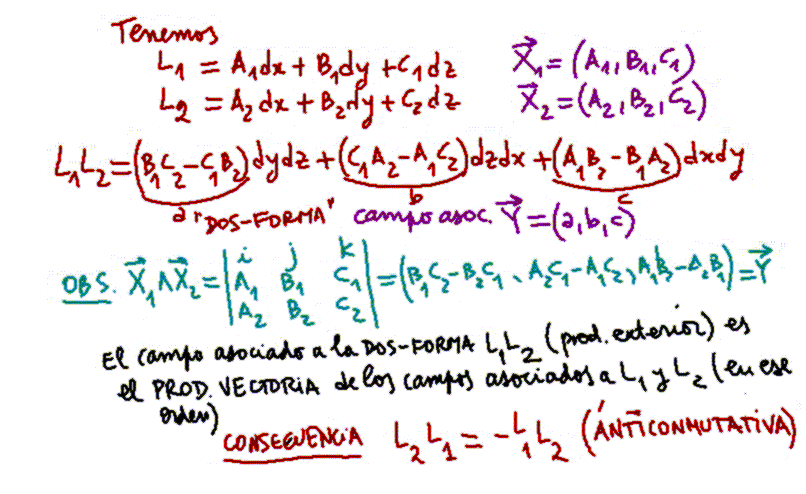 Tenemos
L₁ = A₁dx + B₁dy + C₁dz X⃗₁ = (A₁, B₁, C₁)
L₂ = A₂dx + B₂dy + C₂dz X⃗₂ = (A₂, B₂, C₂)
L₁L₂ = (B₁C₂ - C₁B₂)dydz + (C₁A₂ - A₁C₂)dzdx + (A₁B₂ - B₁A₂)dxdy
a b c
"DOS-FORMA" campo asoc. Y⃗ = (a, b, c)
i j k
OBS. X⃗₁ ∧ X⃗₂ = | A₁ B₁ C₁ | = (B₁C₂ - B₂C₁, A₂C₁ - A₁C₂, A₁B₂ - A₂B₁) = Y⃗
A₂ B₂ C₂
El campo asociado a la DOS-FORMA L₁L₂ (prod. exterior) es
el PROD. VECTORIA de los campos asociados a L₁ y L₂ (en ese
orden)
CONSECUENCIA L₂L₁ = -L₁L₂ (ANTICONMUTATIVA)